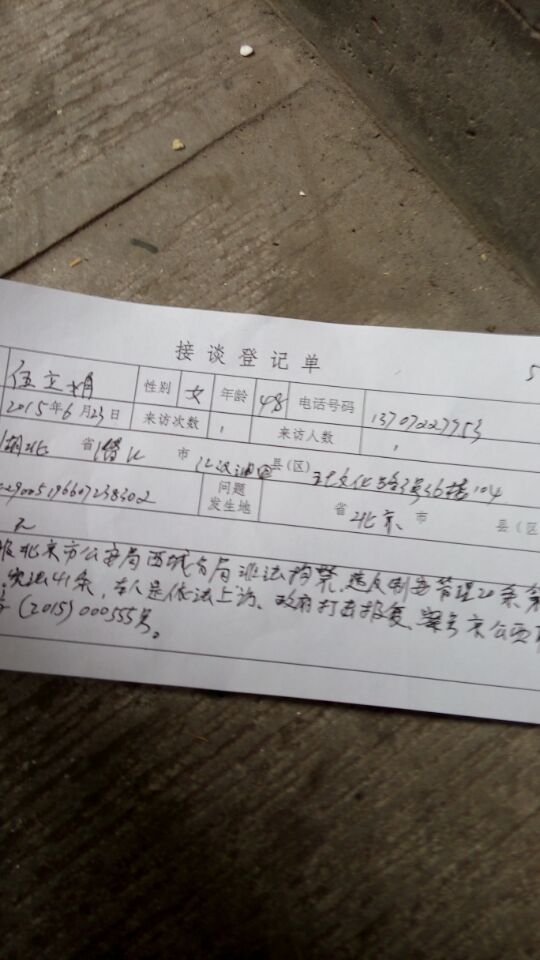 接谈登记单
5
伍立娟 性别 女 年龄 48 电话号码 13707227753
2015年6月23日 来访次数 1 来访人数 1
湖北 省 潜江 市 江汉油田 县(区) 文化路3号36栋104
29005196607238302 问题发生地 省 北京 市 县(区
无
服北京市公安局西城分局非法拘禁,违反制安管理20条第
宪法41条,本人是依法上访、政府打击报复、案号京公
字(2015)000555号。